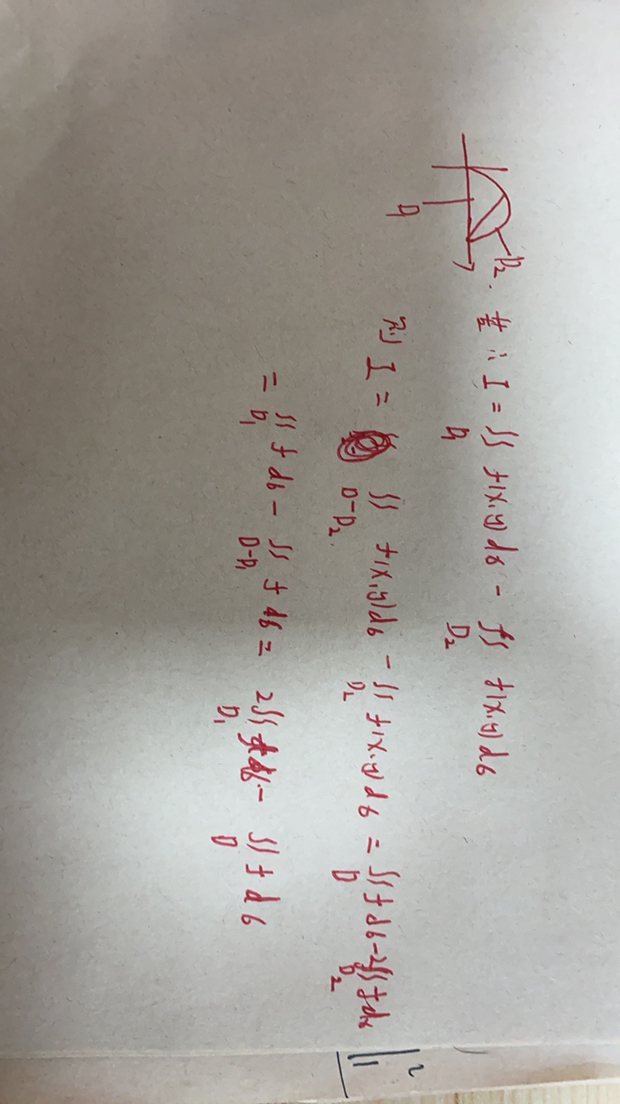 D₁
D₂.
若: I = ∬_{D₁} f(x,y)dσ - ∬_{D₂} f(x,y)dσ
则 I = ∬_{D-D₂} f(x,y)dσ - ∬_{D₂} f(x,y)dσ = ∬_{D} f dσ - 2∬_{D₂} f dσ
= ∬_{D₁} f dσ - ∬_{D-D₁} f dσ = 2∬_{D₁} f dσ - ∬_{D} f dσ